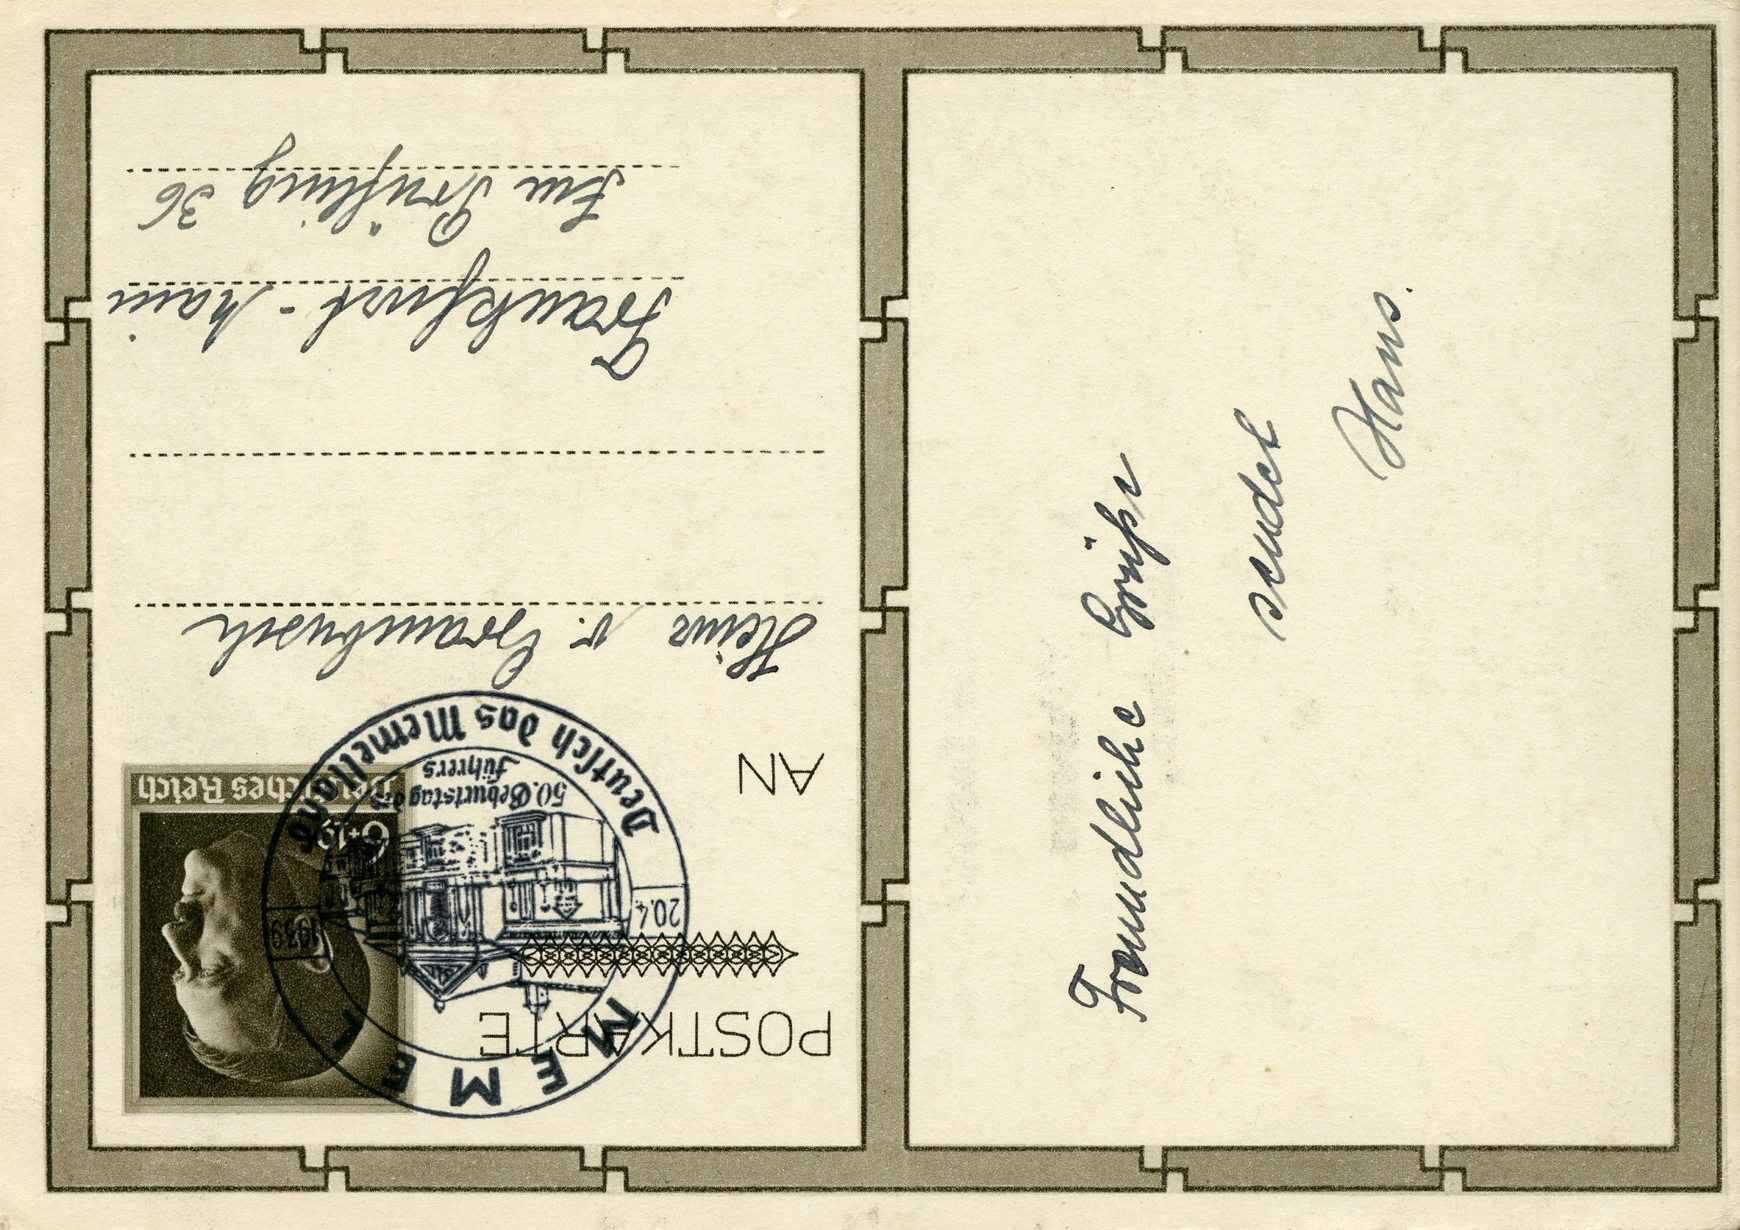 POSTKARTE
AN
Heinz v. Grambusch
Frankfurt - Main
Am Prüfling 36
Deutsches Reich
6+19
MEMEL
20.4.
1939
50. Geburtstag des
Führers
Deutsch das Memelland
Freundliche Grüße
sendet
Hans.